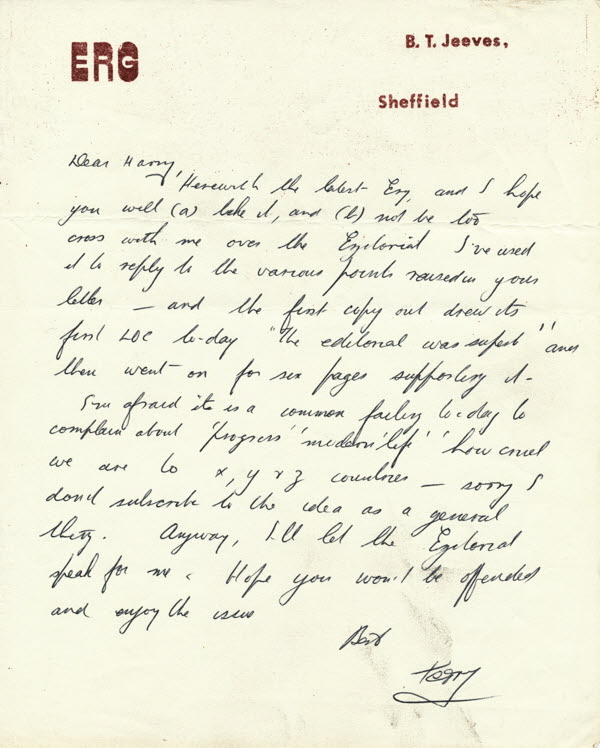 ERG
B. T. Jeeves,
Sheffield
Dear Harry,
Herewith the latest Erg, and I hope
you will (a) like it, and (b) not be too
cross with me over the Ergitorial I've used
it to reply to the various points raised in your
letter — and the first copy out drew its
first LOC to-day "The editorial was superb" and
then went on for six pages supporting it.
I'm afraid it is a common failing to-day to
complain about 'progress' 'modern life' 'how cruel
we are to x, y & z countries — sorry I
don't subscribe to the idea as a general
thing. Anyway, I'll let the Ergitorial
speak for me. Hope you won't be offended
and enjoy the issue
Best
Terry